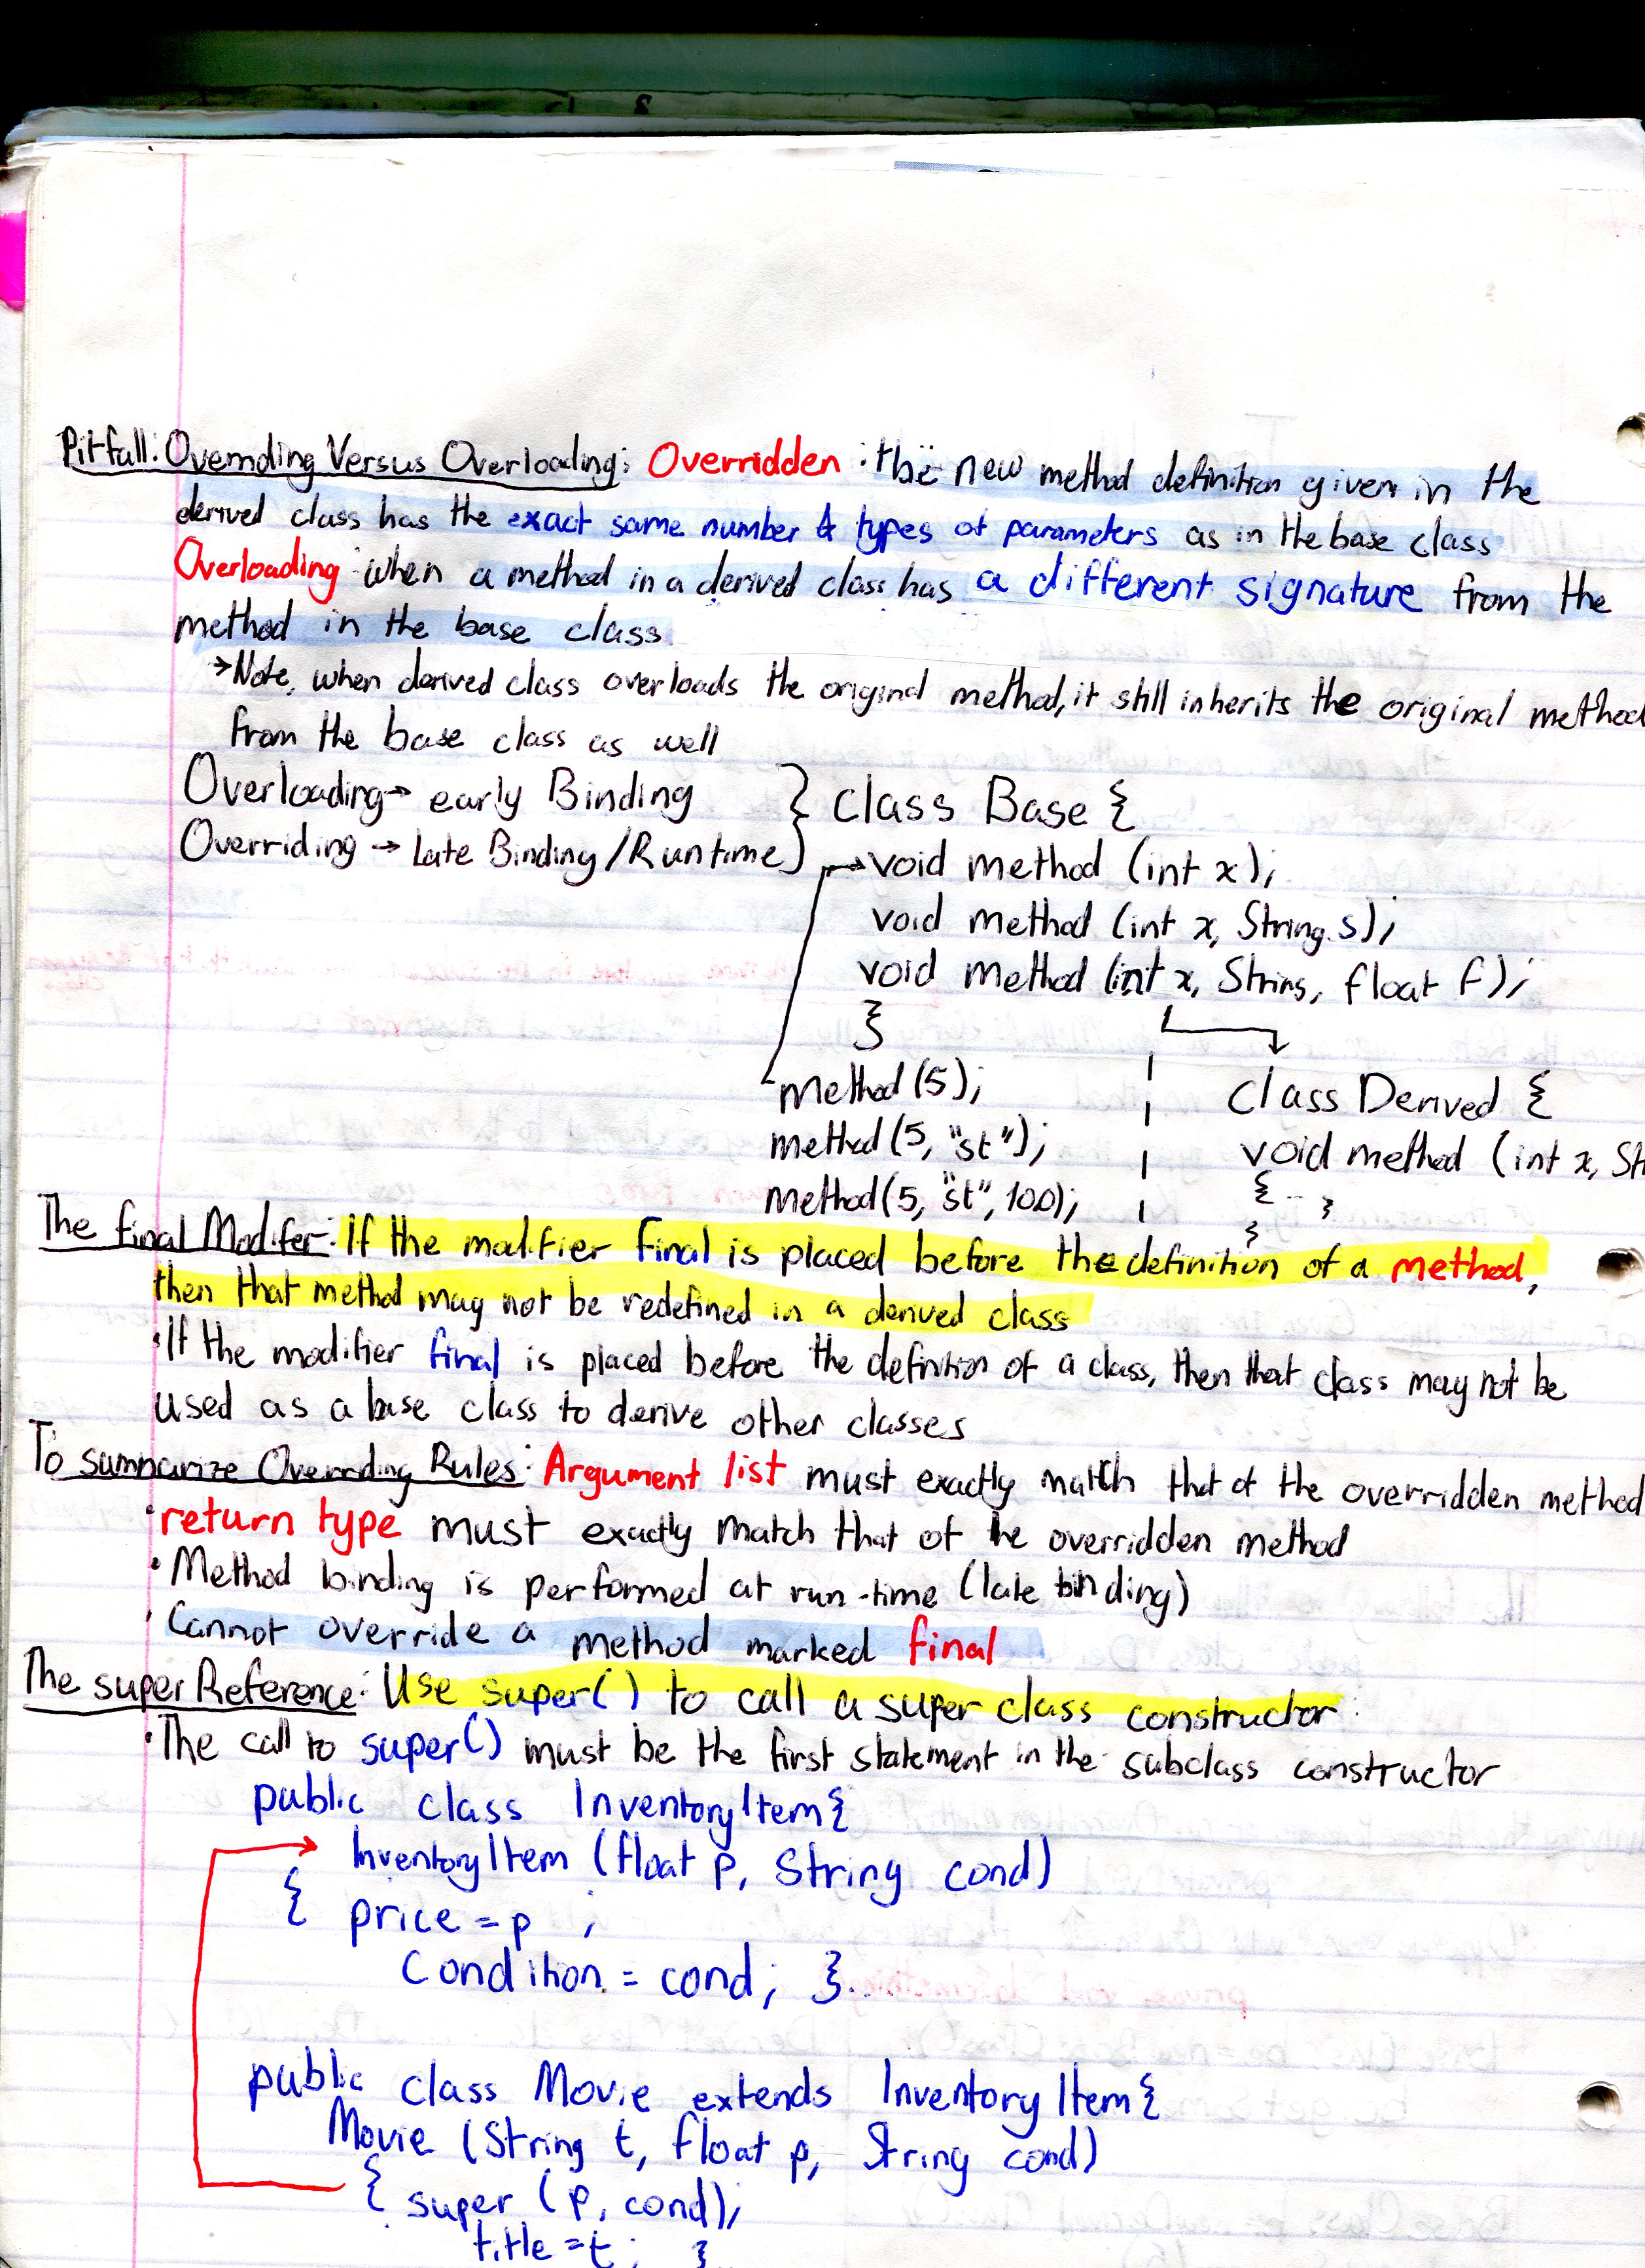 Pitfall: Overriding Versus Overloading: Overridden: the new method definition given in the
derived class has the exact same number & types of parameters as in the base class
Overloading: when a method in a derived class has a different signature from the
method in the base class
→Note, when derived class overloads the original method, it still inherits the original method
from the base class as well
Overloading→ early Binding
Overriding → Late Binding/Runtime
} class Base {
void method (int x);
void method (int x, String s);
void method (int x, String, float f);
}
method (5);
method (5, "st");
method (5, "st", 10.0);
class Derived {
void method (int x, St
{ .. }
}
The final Modifer: If the modifier final is placed before the definition of a method,
then that method may not be redefined in a derived class
• If the modifier final is placed before the definition of a class, then that class may not be
used as a base class to derive other classes
To summarize Overriding Rules: Argument list must exactly match that of the overridden method
• return type must exactly match that of the overridden method
• Method binding is performed at run-time (late binding)
• Cannot override a method marked final
The super Reference: Use super() to call a super class constructor
• The call to super() must be the first statement in the subclass constructor
public class InventoryItem{
InventoryItem (float p, String cond)
{ price = p ;
Condition = cond; }..
public class Movie extends InventoryItem{
Movie (String t, float p, String cond)
{ super (p, cond);
title = t; }